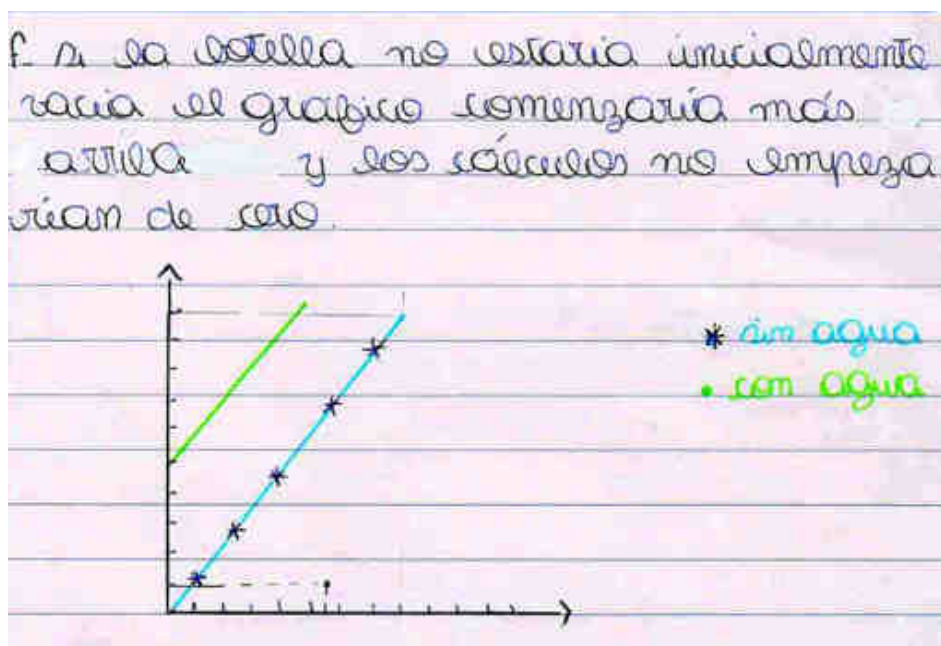 f- si la botella no estaria inicialmente
vacia el gráfico comenzaría más
arriba y los cálculos no empeza
rian de cero.
* sin agua
• con agua